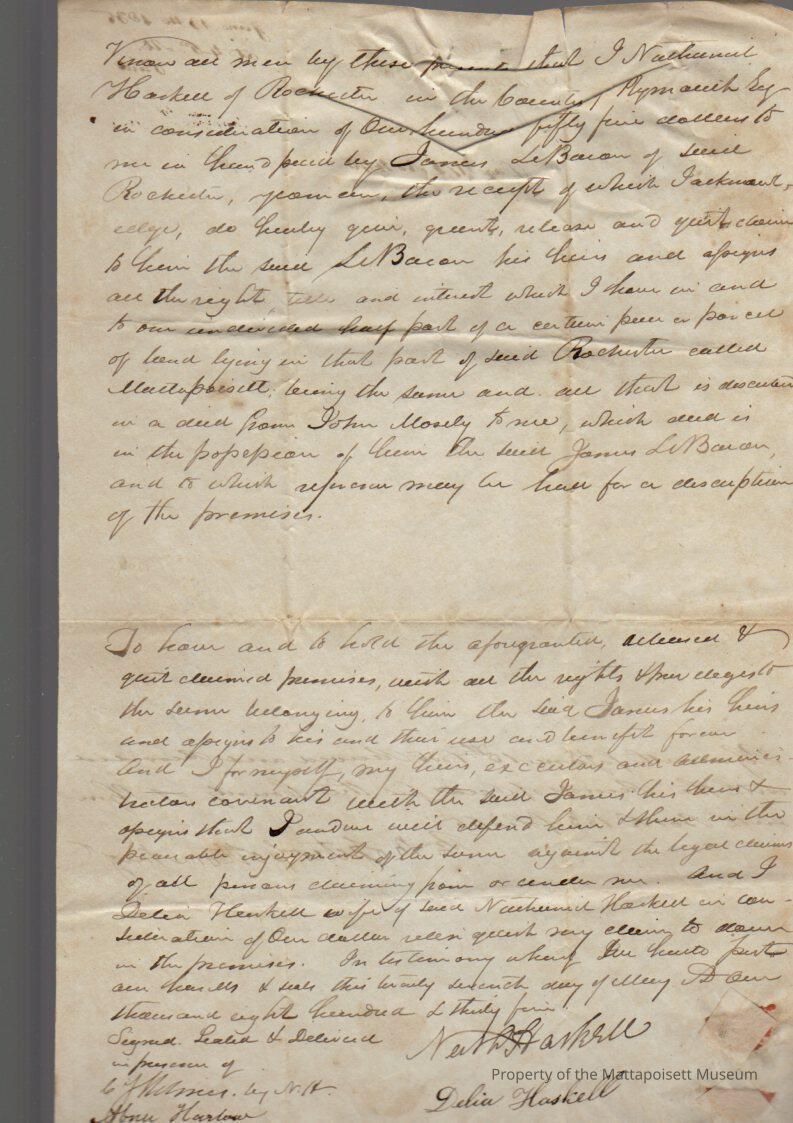 Know all men by these presents that I Nathaniel
Haskell of Rochester in the County of Plymouth Esq
in consideration of One hundred fifty five dollars to
me in hand paid by James LeBaron of said
Rochester, yeoman, the receipt of which I acknowl-
edge, do hereby give, grant, release and quit claim
to him the said LeBaron his heirs and assigns
all the right, title and interest which I have in and
to one undivided half part of a certain piece or parcel
of land lying in that part of said Rochester called
Mattapoisett; being the same and all that is described
in a deed from John Mosely to me, which deed is
in the possession of him the said James LeBaron,
and to which reference may be had for a description
of the premises.
To have and to hold the aforegranted, released &
quit claimed premises, with all the rights & privileges to
the same belonging, to him the said James his heirs
and assigns to his and their use and benefit forever
And I for myself, my heirs, executors and adminis-
trators covenant with the said James his heirs &
assigns that I and we will defend him & them in the
peaceable enjoyment of the same against the legal claims
of all persons claiming from or under me. And I
Delia Haskell wife of said Nathaniel Haskell in con-
sideration of One dollar relinquish my claim to dower
in the premises. In testimony whereof We hereto put
our hands & seals this twenty seventh day of May AD One
thousand eight hundred & thirty five
Signed Sealed & Delivered
in presence of
by N.H.
Abner Harlow
Nath Haskell
Delia Haskell
Property of the Mattapoisett Museum